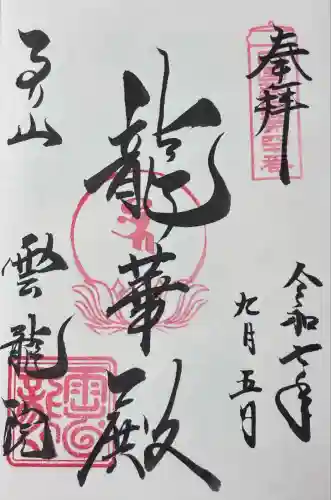 奉拝
令和七年
九月五日
龍華殿
雲龍院